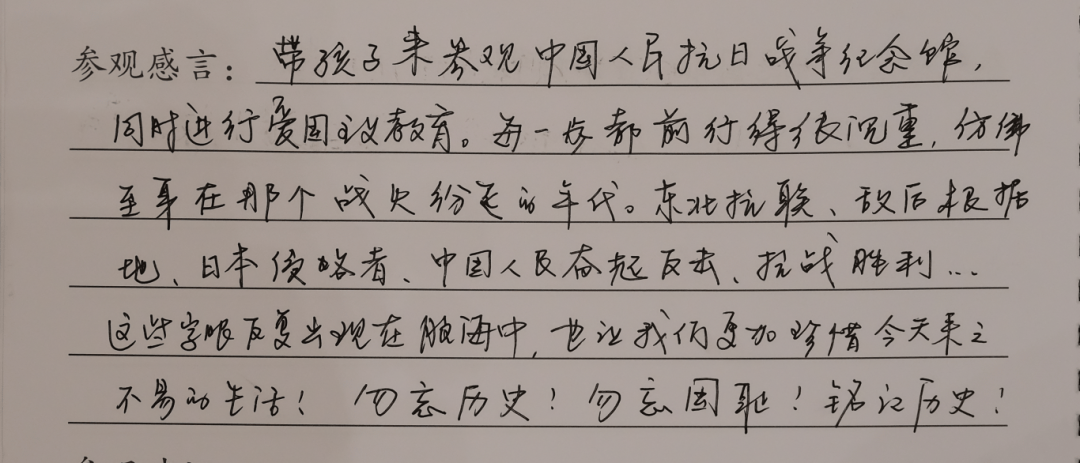 参观感言：带孩子来参观中国人民抗日战争纪念馆，
同时进行爱国主义教育。每一步都前行得很沉重，仿佛
至身在那个战火纷飞的年代。东北抗联、敌后根据
地、日本侵略者、中国人民奋起反击、抗战胜利...
这些字眼反复出现在脑海中，也让我们更加珍惜今天来之
不易的生活！勿忘历史！勿忘国耻！铭记历史！